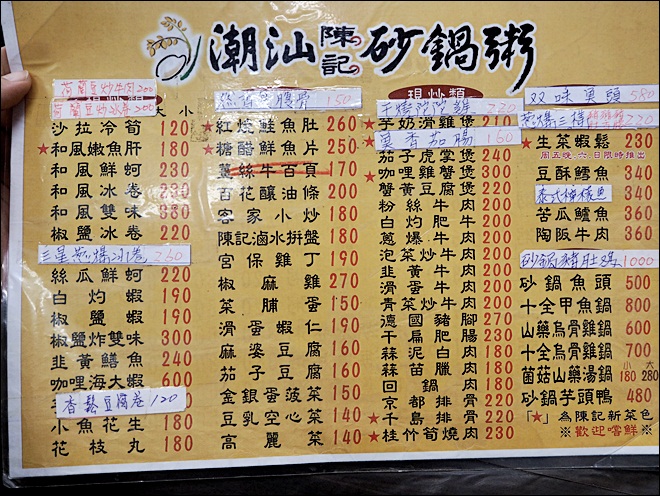 潮汕陳記砂鍋粥
荷蘭豆炒牛肉200
荷蘭豆炒冰卷200
大 小
沙拉冷筍 120
★和風嫩魚肝 180
和風鮮蚵 230
和風冰卷 220
和風雙味 330
椒鹽冰卷 220
260
絲瓜鮮蚵 220
白灼蝦 190
椒鹽蝦 190
椒鹽炸雙味 300
韭黃鱔魚 240
咖哩海大蝦 600
香鬆豆腐卷 120
小魚花生 180
花枝丸 180
150
★紅燒鮭魚肚 260
★糖醋鮭魚片 250
蔥絲牛百頁 170
百花釀油條 200
客家小炒 180
陳記滷水拼盤 180
宮保雞丁 190
椒麻雞 270
菜脯蛋 150
滑蛋蝦仁 190
麻婆豆腐 160
茄子豆腐 160
金銀蛋菠菜 150
豆乳空心菜 140
高麗菜 140
現炒類
干燒陀陀雞 220
★芋奶滑雞煲 210
茴香茄腸 160
茄子虎掌煲 240
★咖哩雞蟹煲 240
蟹黃豆腐煲 220
粉絲牛肉 200
白灼肥牛 200
蔥爆牛肉 200
泡菜炒牛肉 200
滑蛋牛肉 200
青菜炒牛肉 200
德國豬腳 270
干扁肥腸 230
蒜泥白肉 180
蒜苗臘肉 180
回鍋肉 180
京都排骨 190
★千島排骨 220
★桂竹筍燒肉 230
双味魚頭 580
蔥爆三樣
★生菜蝦鬆 230
周五晚.六.日限時推出
豆酥鱈魚 340
泰式檸檬魚
苦瓜鱸魚 360
陶板牛肉 340
砂鍋豬肚鍋 1000
砂鍋魚頭 500
十全甲魚鍋 800
山藥烏骨雞鍋 700
十全烏骨雞鍋 700
小 大
菌菇山藥湯鍋 180 280
砂鍋芋頭鴨 480
「★」為陳記新菜色
※歡迎嚐鮮※